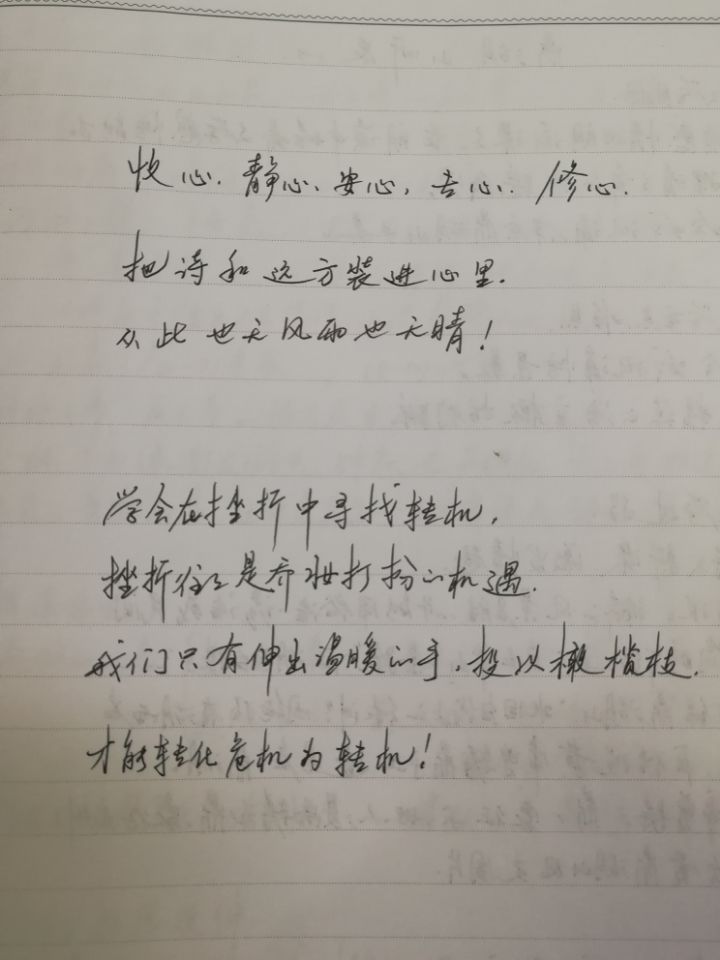 收心、静心、安心,去心、修心.
把诗和远方装进心里.
从此也无风雨也无晴!
学会在挫折中寻找转机,
挫折往往是乔妆打扮的机遇.
我们只有伸出温暖的手,投以橄榄枝.
才能转化危机为转机!